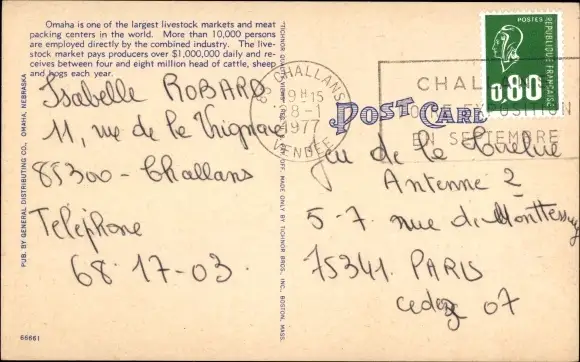 Omaha is one of the largest livestock markets and meat
packing centers in the world. More than 10,000 persons
are employed directly by the combined industry. The live-
stock market pays producers over $1,000,000 daily and re-
ceives between four and eight million head of cattle, sheep
and hogs each year.
Isabelle ROBARD
11, rue de la Vrignaie
85300 - Challans
Telephone
68.17-03.
PUB. BY GENERAL DISTRIBUTING CO., OMAHA, NEBRASKA
66661
MADE ONLY BY TICHNOR BROS., INC., BOSTON, MASS.
POST CARD
85 CHALLANS
18-1
1977
VENDÉE
CHAL
EXPOSITION
EN SEPTEMBRE
POSTES
REPUBLIQUE FRANÇAISE
0,80
Jeu de la
Antenne 2
5-7. rue de Monttessuy
75341. PARIS
cedex 07